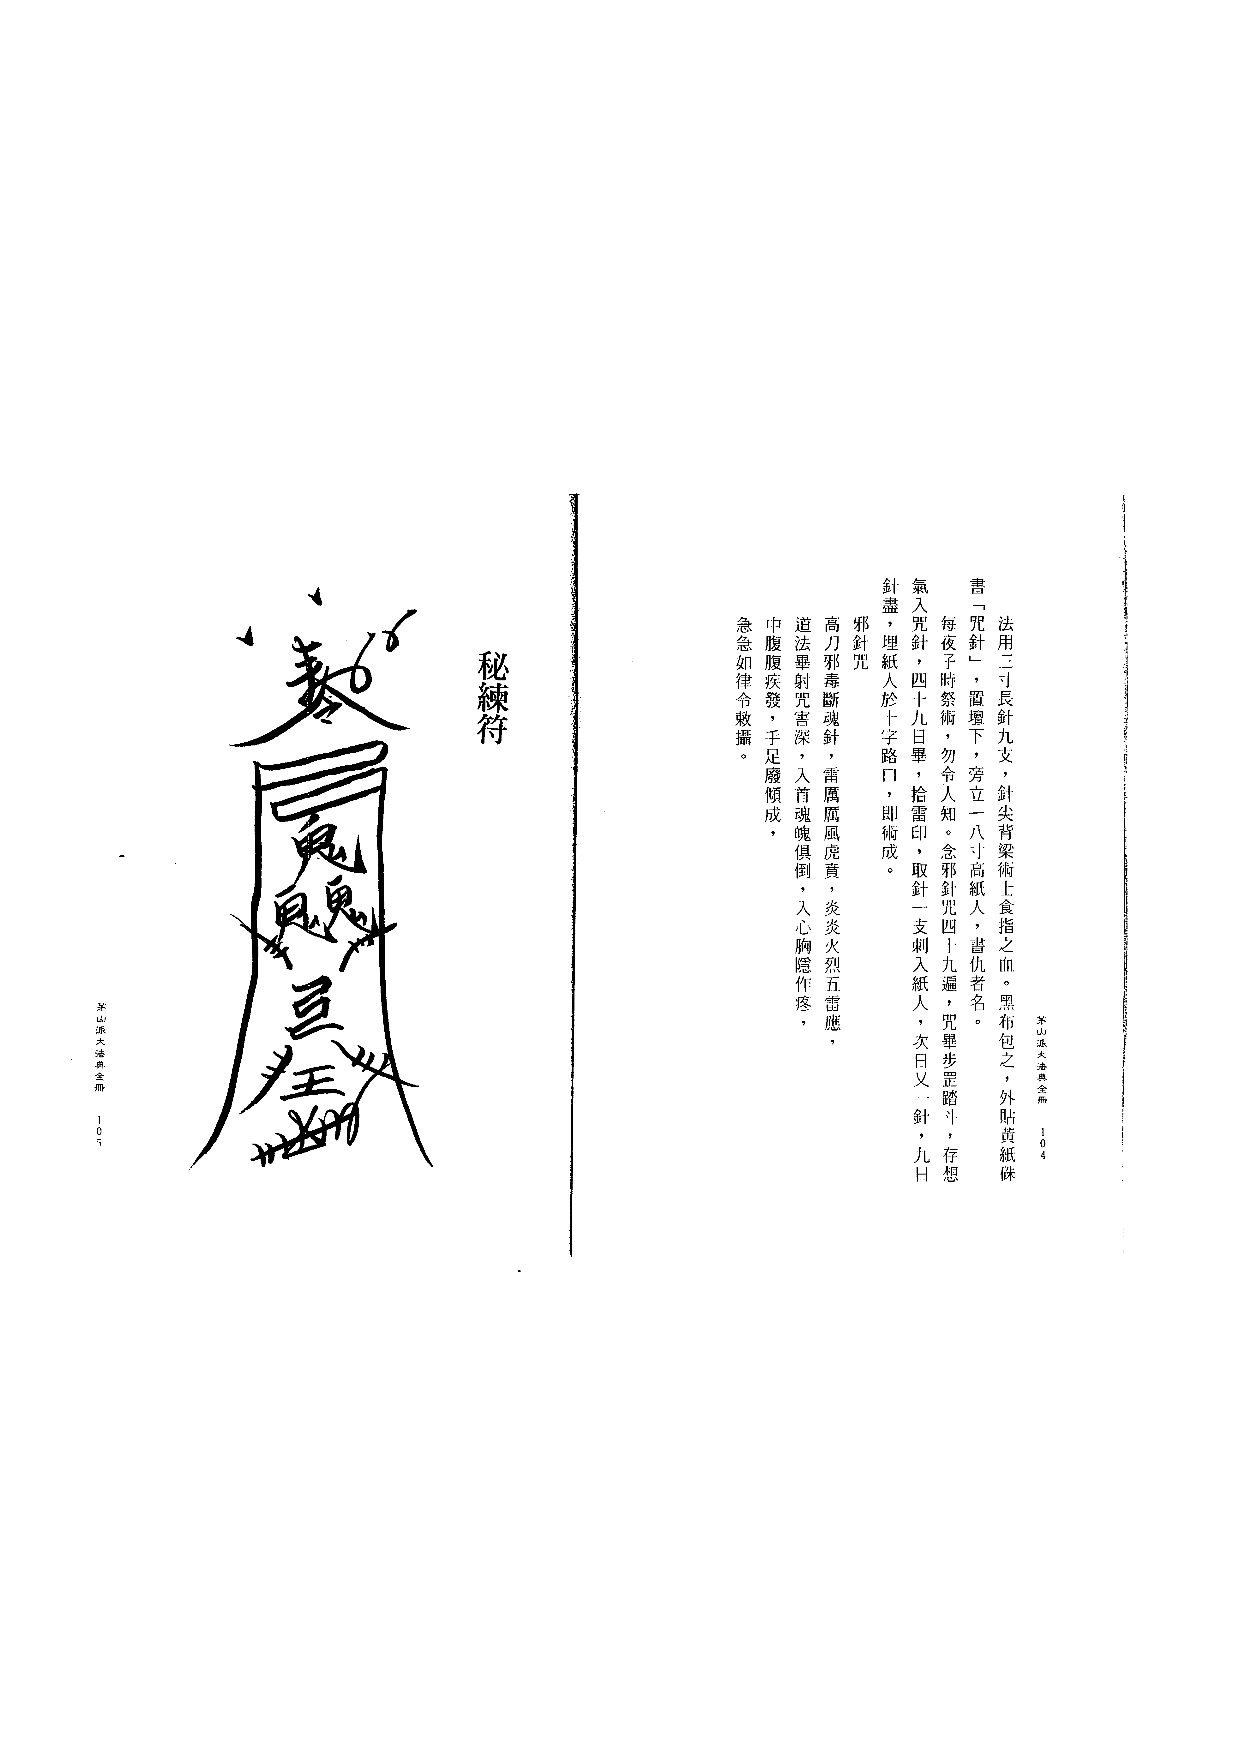 茅山派大法典全冊 104
法用三寸長針九支，針尖背梁術士食指之血。黑布包之，外貼黃紙硃
書「咒針」，置壇下，旁立一八寸高紙人，書仇者名。
每夜子時祭術，勿令人知。念邪針咒四十九遍，咒畢步罡踏斗，存想
氣入咒針，四十九日畢，掐雷印，取針一支刺入紙人，次日又一針，九日
針盡，埋紙人於十字路口，即術成。
邪針咒
高刀邪毒斷魂針，雷厲厲風虎賁，炎炎火烈五雷應，
道法畢射咒害深，入首魂魄俱倒，入心胸隱作疼，
中腹腹疾發，手足廢傾成，
急急如律令敕攝。
秘練符
鬼
鬼鬼
豆
王
茅山派大法典全冊 105